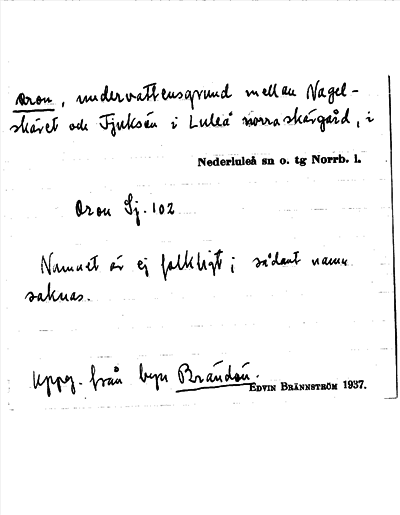 Oron, undervattensgrund mellan Nagel-
skäret och Fjuksön i Luleå norra skärgård, i
Nederluleå sn o. tg Norrb. l.
Oron Sj. 102
Namnet är ej folkligt; sådant namn
saknas.
Uppg. från byn Brändön.
EDVIN BRÄNNSTRÖM 1937.